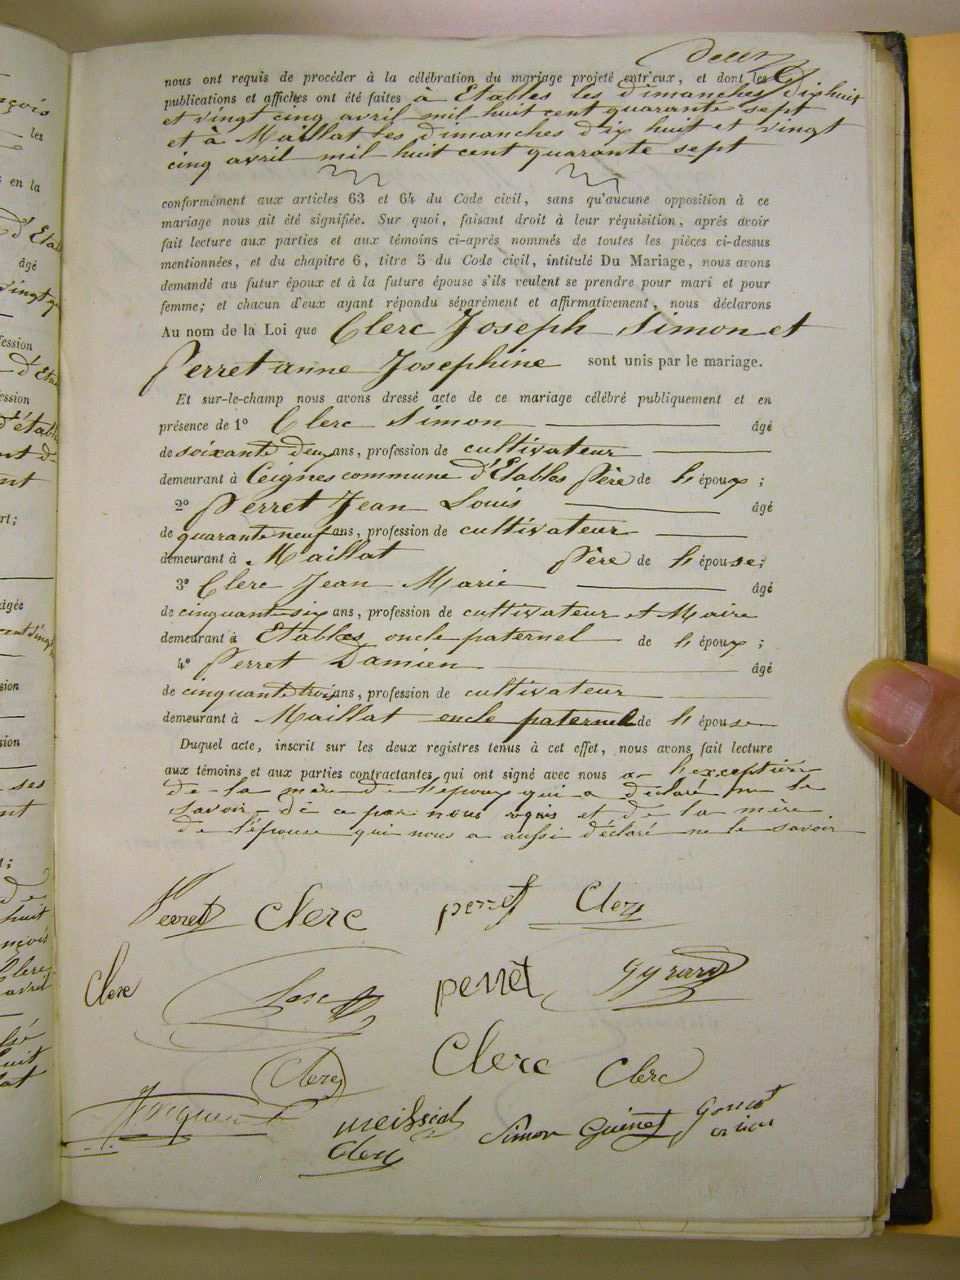 deux
nous ont requis de procéder à la célébration du mariage projeté entr'eux, et dont les
publications et affiches ont été faites à Etables les dimanches dix huit
et vingt cinq avril mil huit cent quarante sept
et à Maillat les dimanches dix huit et vingt
cinq avril mil huit cent quarante sept
conformément aux articles 63 et 64 du Code civil, sans qu'aucune opposition à ce
mariage nous ait été signifiée. Sur quoi, faisant droit à leur réquisition, après avoir
fait lecture aux parties et aux témoins ci-après nommés de toutes les pièces ci-dessus
mentionnées, et du chapitre 6, titre 5 du Code civil, intitulé Du Mariage, nous avons
demandé au futur époux et à la future épouse s'ils veulent se prendre pour mari et pour
femme; et chacun d'eux ayant répondu séparément et affirmativement, nous déclarons
Au nom de la Loi que Clerc Joseph Simon et
Perret anne Josephine sont unis par le mariage.
Et sur-le-champ nous avons dressé acte de ce mariage célébré publiquement et en
présence de 1º Clerc Simon âgé
de soixante deux ans, profession de cultivateur
demeurant à Ceignes commune d'Etables Père de l'époux;
2º Perret Jean Louis âgé
de quarante neuf ans, profession de cultivateur
demeurant à Maillat Père de l'épouse;
3º Clerc Jean Marie âgé
de cinquante six ans, profession de cultivateur et Maire
demeurant à Etables oncle paternel de l'époux;
4º Perret Damien âgé
de cinquante trois ans, profession de cultivateur
demeurant à Maillat oncle paternel de l'épouse
Duquel acte, inscrit sur les deux registres tenus à cet effet, nous avons fait lecture
aux témoins et aux parties contractantes qui ont signé avec nous a l'exception
de la mère de l'époux qui a déclaré ne le
savoir de ce par nous requis et de la mère
de l'épouse qui nous a aussi déclaré ne le savoir
Perret Clerc perret Clerc
Clerc perret Gyrard
Clerc Clerc Clerc
Clerc Simon Guinet